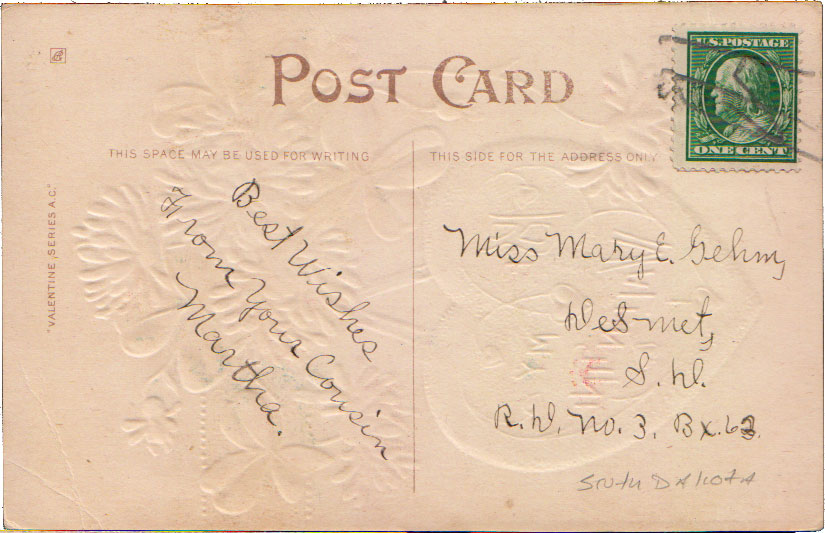 POST CARD
U.S. POSTAGE
ONE CENT
THIS SPACE MAY BE USED FOR WRITING
THIS SIDE FOR THE ADDRESS ONLY
"VALENTINE, SERIES A.C."
Best Wishes
From Your Cousin
Martha.
Miss Mary E. Gehm,
DeSmet,
S.D.
R.D. No. 3, Bx. 62
South Dakota